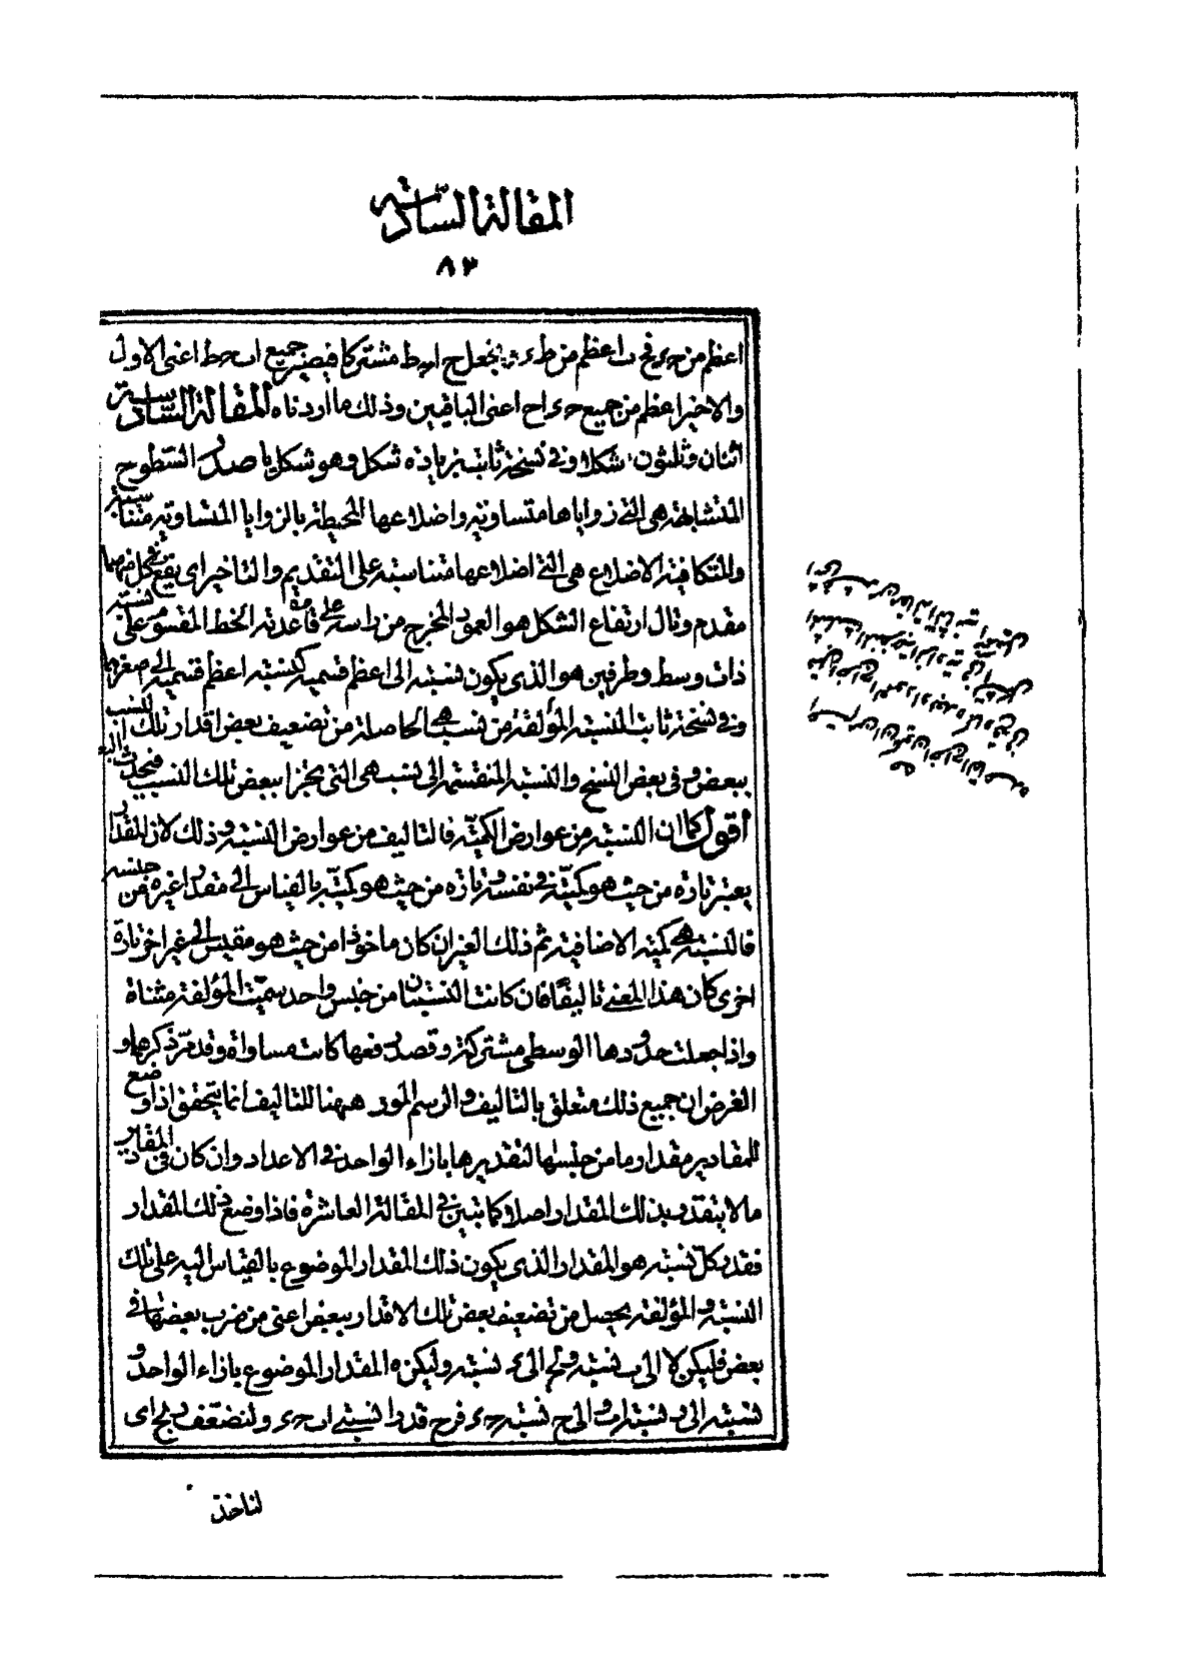 المقالة السادسة
٨٣
اعظم من ح ى فح ب اعظم من ط ى ونجعل ح ا ب ط مشتركا فيصير جميع ا ب ح ط اعنى الاول
والاخير اعظم من جميع ح ى ا ح اعنى الباقيين وذلك ما اردناه المقالة السادسة
اثنان وثلثون شكلا وفى نسخة ثابت بزيادة شكل وهو شكل يا صدر السطوح
المتشابهة هى التى زواياها متساوية واضلاعها المحيطة بالزوايا المتساوية متناسبة
والمتكافية الاضلاع هى التى اضلاعها متناسبة على التقديم والتاخير اى يقع فى كل منهما
مقدم وتال ارتفاع الشكل هو العمود المخرج من راسه على قاعدته الخط المقسوم على نسبة
ذات وسط وطرفين هو الذى يكون نسبته الى اعظم قسميه كنسبة اعظم قسميه الى اصغرهما
وفى نسخة ثابت النسبة المؤلفة من نسب هى الحاصلة من تضعيف بعض اقدار تلك النسب
ببعض وفى بعض النسخ والنسبة المنقسمة الى نسب هى التى تجزا ببعض تلك النسب فيحدث
أقول كما ان النسبة من عوارض الكمية فالتاليف من عوارض النسبة وذلك لان المقدار
يعتبر تارة من حيث هو كمية فى نفسه وتارة من حيث هو كمية بالقياس الى مقدار غيره من جنسه
فالنسبة هى كمية الاضافية ثم ذلك الغير ان كان ماخوذا من حيث هو مقيس الى غير اخر تارة
اخرى كان هذا المعنى تاليفا فان كانت النسبتان من جنس واحد سميت المؤلفة مثناة
واذا جعلت حدودها الوسطى مشتركة وقصد رفعها كانت مساواة وقد مر ذكرهما و
الغرض ان جميع ذلك متعلق بالتاليف والرسم المورد ههنا للتاليف انما يتحقق اذا وضع
للمقادير مقدار ما من جنسها لتقديرها بازاء الواحد فى الاعداد وان كان فى المقادير
ما لا يتقدر بذلك المقدار اصلا كما تبين فى المقالة العاشرة فاذا وضع ذلك المقدار
فقدر كل نسبة هو المقدار الذى يكون ذلك المقدار الموضوع بالقياس اليه على تلك
النسبة والمؤلفة يحصل من تضعيف بعض تلك الاقدار ببعض اعنى من ضرب بعضها فى
بعض فليكن لا الى ب نسبة ولح الى ى نسبة وليكن ه المقدار الموضوع بازاء الواحد و
نسبته الى ر نسبة ا ب والى ح نسبة ح ى فر ح قدرا نسبتى ا ب ح ى ولنضعف ر بح اى
لناخذ